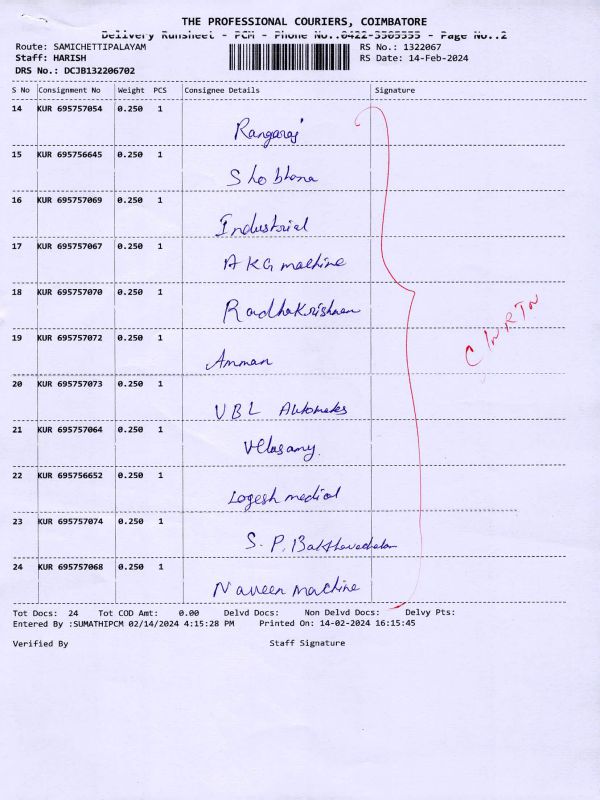 THE PROFESSIONAL COURIERS, COIMBATORE
Delivery Runsheet - PCM - Phone No.:0422-3505555 - Page No.:2
Route: SAMICHETTIPALAYAM
RS No.: 1322067
Staff: HARISH
RS Date: 14-Feb-2024
DRS No.: DCJB132206702
S No Consignment No Weight PCS Consignee Details Signature
14 KUR 695757054 0.250 1
Rangaraj
15 KUR 695756645 0.250 1
Shobhana
16 KUR 695757069 0.250 1
Industrial
17 KUR 695757067 0.250 1
AKG machine
18 KUR 695757070 0.250 1
Radhakrishnan
19 KUR 695757072 0.250 1
Amman
20 KUR 695757073 0.250 1
UBL Automates
21 KUR 695757064 0.250 1
Velusamy
22 KUR 695756652 0.250 1
Logesh medical
23 KUR 695757074 0.250 1
S. P. Bakthavachalam
24 KUR 695757068 0.250 1
Naveen machine
Tot Docs: 24 Tot COD Amt: 0.00 Delvd Docs: Non Delvd Docs: Delvy Pts:
Entered By :SUMATHIPCM 02/14/2024 4:15:28 PM Printed On: 14-02-2024 16:15:45
Verified By Staff Signature